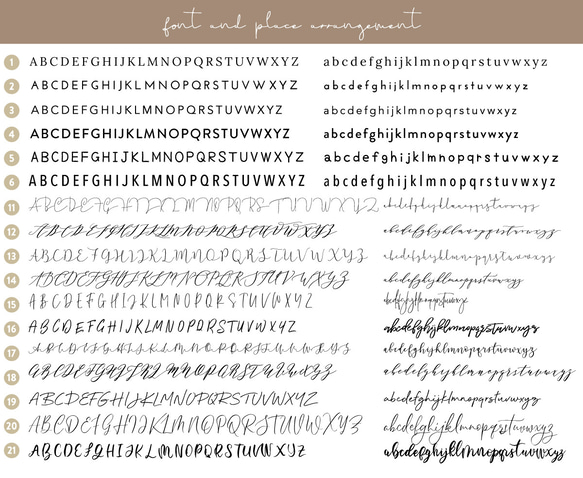 font and place arrangement
1 ABCDEFGHIJKLMNOPQRSTUVWXYZ abcdefghijklmnopqrstuvwxyz
2 ABCDEFGHIJKLMNOPQRSTUVWXYZ abcdefghijklmnopqrstuvwxyz
3 ABCDEFGHIJKLMNOPQRSTUVWXYZ abcdefghijklmnopqrstuvwxyz
4 ABCDEFGHIJKLMNOPQRSTUVWXYZ abcdefghijklmnopqrstuvwxyz
5 ABCDEFGHIJKLMNOPQRSTUVWXYZ abcdefghijklmnopqrstuvwxyz
6 ABCDEFGHIJKLMNOPQRSTUVWXYZ abcdefghijklmnopqrstuvwxyz
11 ABCDEFGHIJKLMNOPQRSTUVWXYZ abcdefghijklmnopqrstuvwxyz
12 ABCDEFGHIJKLMNOPQRSTUVWXYZ abcdefghijklmnopqrstuvwxyz
13 ABCDEFGHIJKLMNOPQRSTUVWXYZ abcdefghijklmnopqrstuvwxyz
14 ABCDEFGHIJKLMNOPQRSTUVWXYZ abcdefghijklmnopqrstuvwxyz
15 ABCDEFGHIJKLMNOPQRSTUVWXYZ abcdefghijklmnopqrstuvwxyz
16 ABCDEFGHIJKLMNOPQRSTUVWXYZ abcdefghijklmnopqrstuvwxyz
17 ABCDEFGHIJKLMNOPQRSTUVWXYZ abcdefghijklmnopqrstuvwxyz
18 ABCDEFGHIJKLMNOPQRSTUVWXYZ abcdefghijklmnopqrstuvwxyz
19 ABCDEFGHIJKLMNOPQRSTUVWXYZ abcdefghijklmnopqrstuvwxyz
20 ABCDEFGHIJKLMNOPQRSTUVWXYZ abcdefghijklmnopqrstuvwxyz
21 ABCDEFGHIJKLMNOPQRSTUVWXYZ abcdefghijklmnopqrstuvwxyz